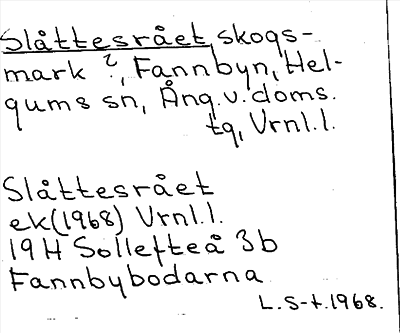 Slåttesrået, skogs-
mark ?, Fannbyn, Hel-
gums sn, Ång.v.doms.
tg, Vrnl.l.
Slåttesrået
ek(1968) Vrnl.l.
19H Sollefteå 3b
Fannbybodarna
L.S-t.1968.